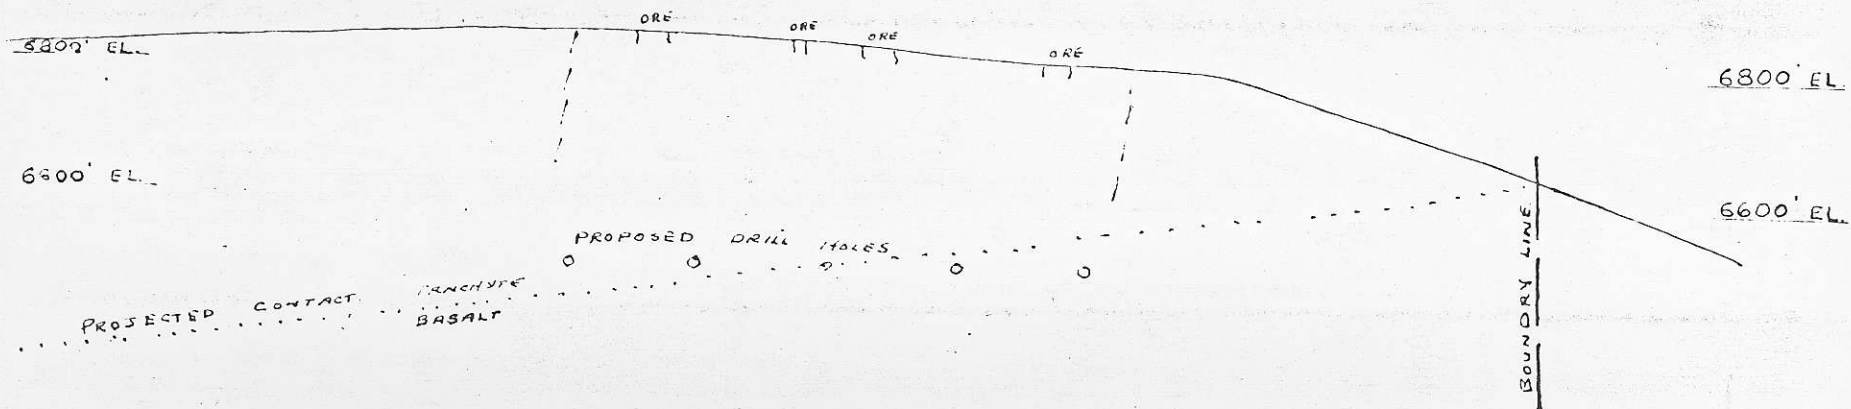 ORE
ORE
ORE
ORE
6800' EL.
6800' EL.
6600' EL.
6600' EL.
PROPOSED DRILL HOLES
PROJECTED CONTACT TRACHYTE
BASALT
BOUNDRY LINE